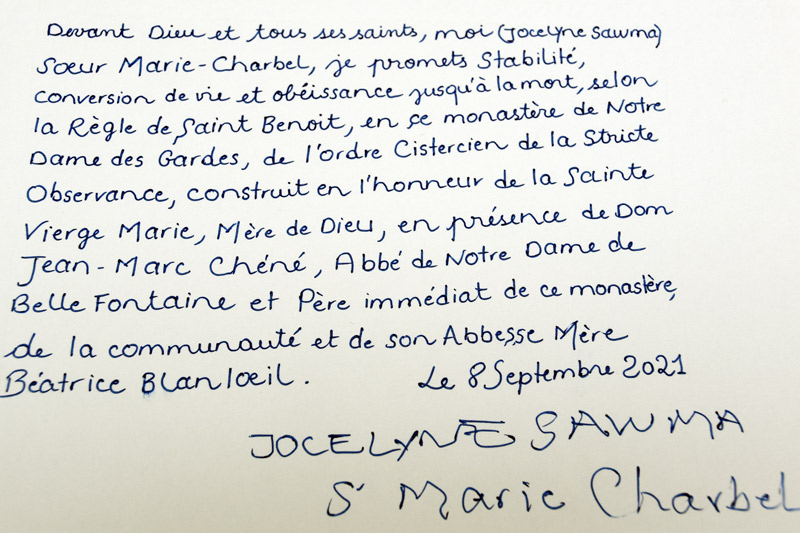 Devant Dieu et tous ses saints, moi (Jocelyne Sawma)
Sœur Marie-Charbel, je promets Stabilité,
conversion de vie et obéissance jusqu'à la mort, selon
la Règle de Saint Benoit, en ce monastère de Notre
Dame des Gardes, de l'ordre Cistercien de la Stricte
Observance, construit en l'honneur de la Sainte
Vierge Marie, Mère de Dieu, en présence de Dom
Jean-Marc Chéné, Abbé de Notre Dame de
Belle Fontaine et Père immédiat de ce monastère,
de la communauté et de son Abbesse Mère
Béatrice Blanloeil. Le 8 Septembre 2021
JOCELYNE SAWMA
Sr Marie Charbel